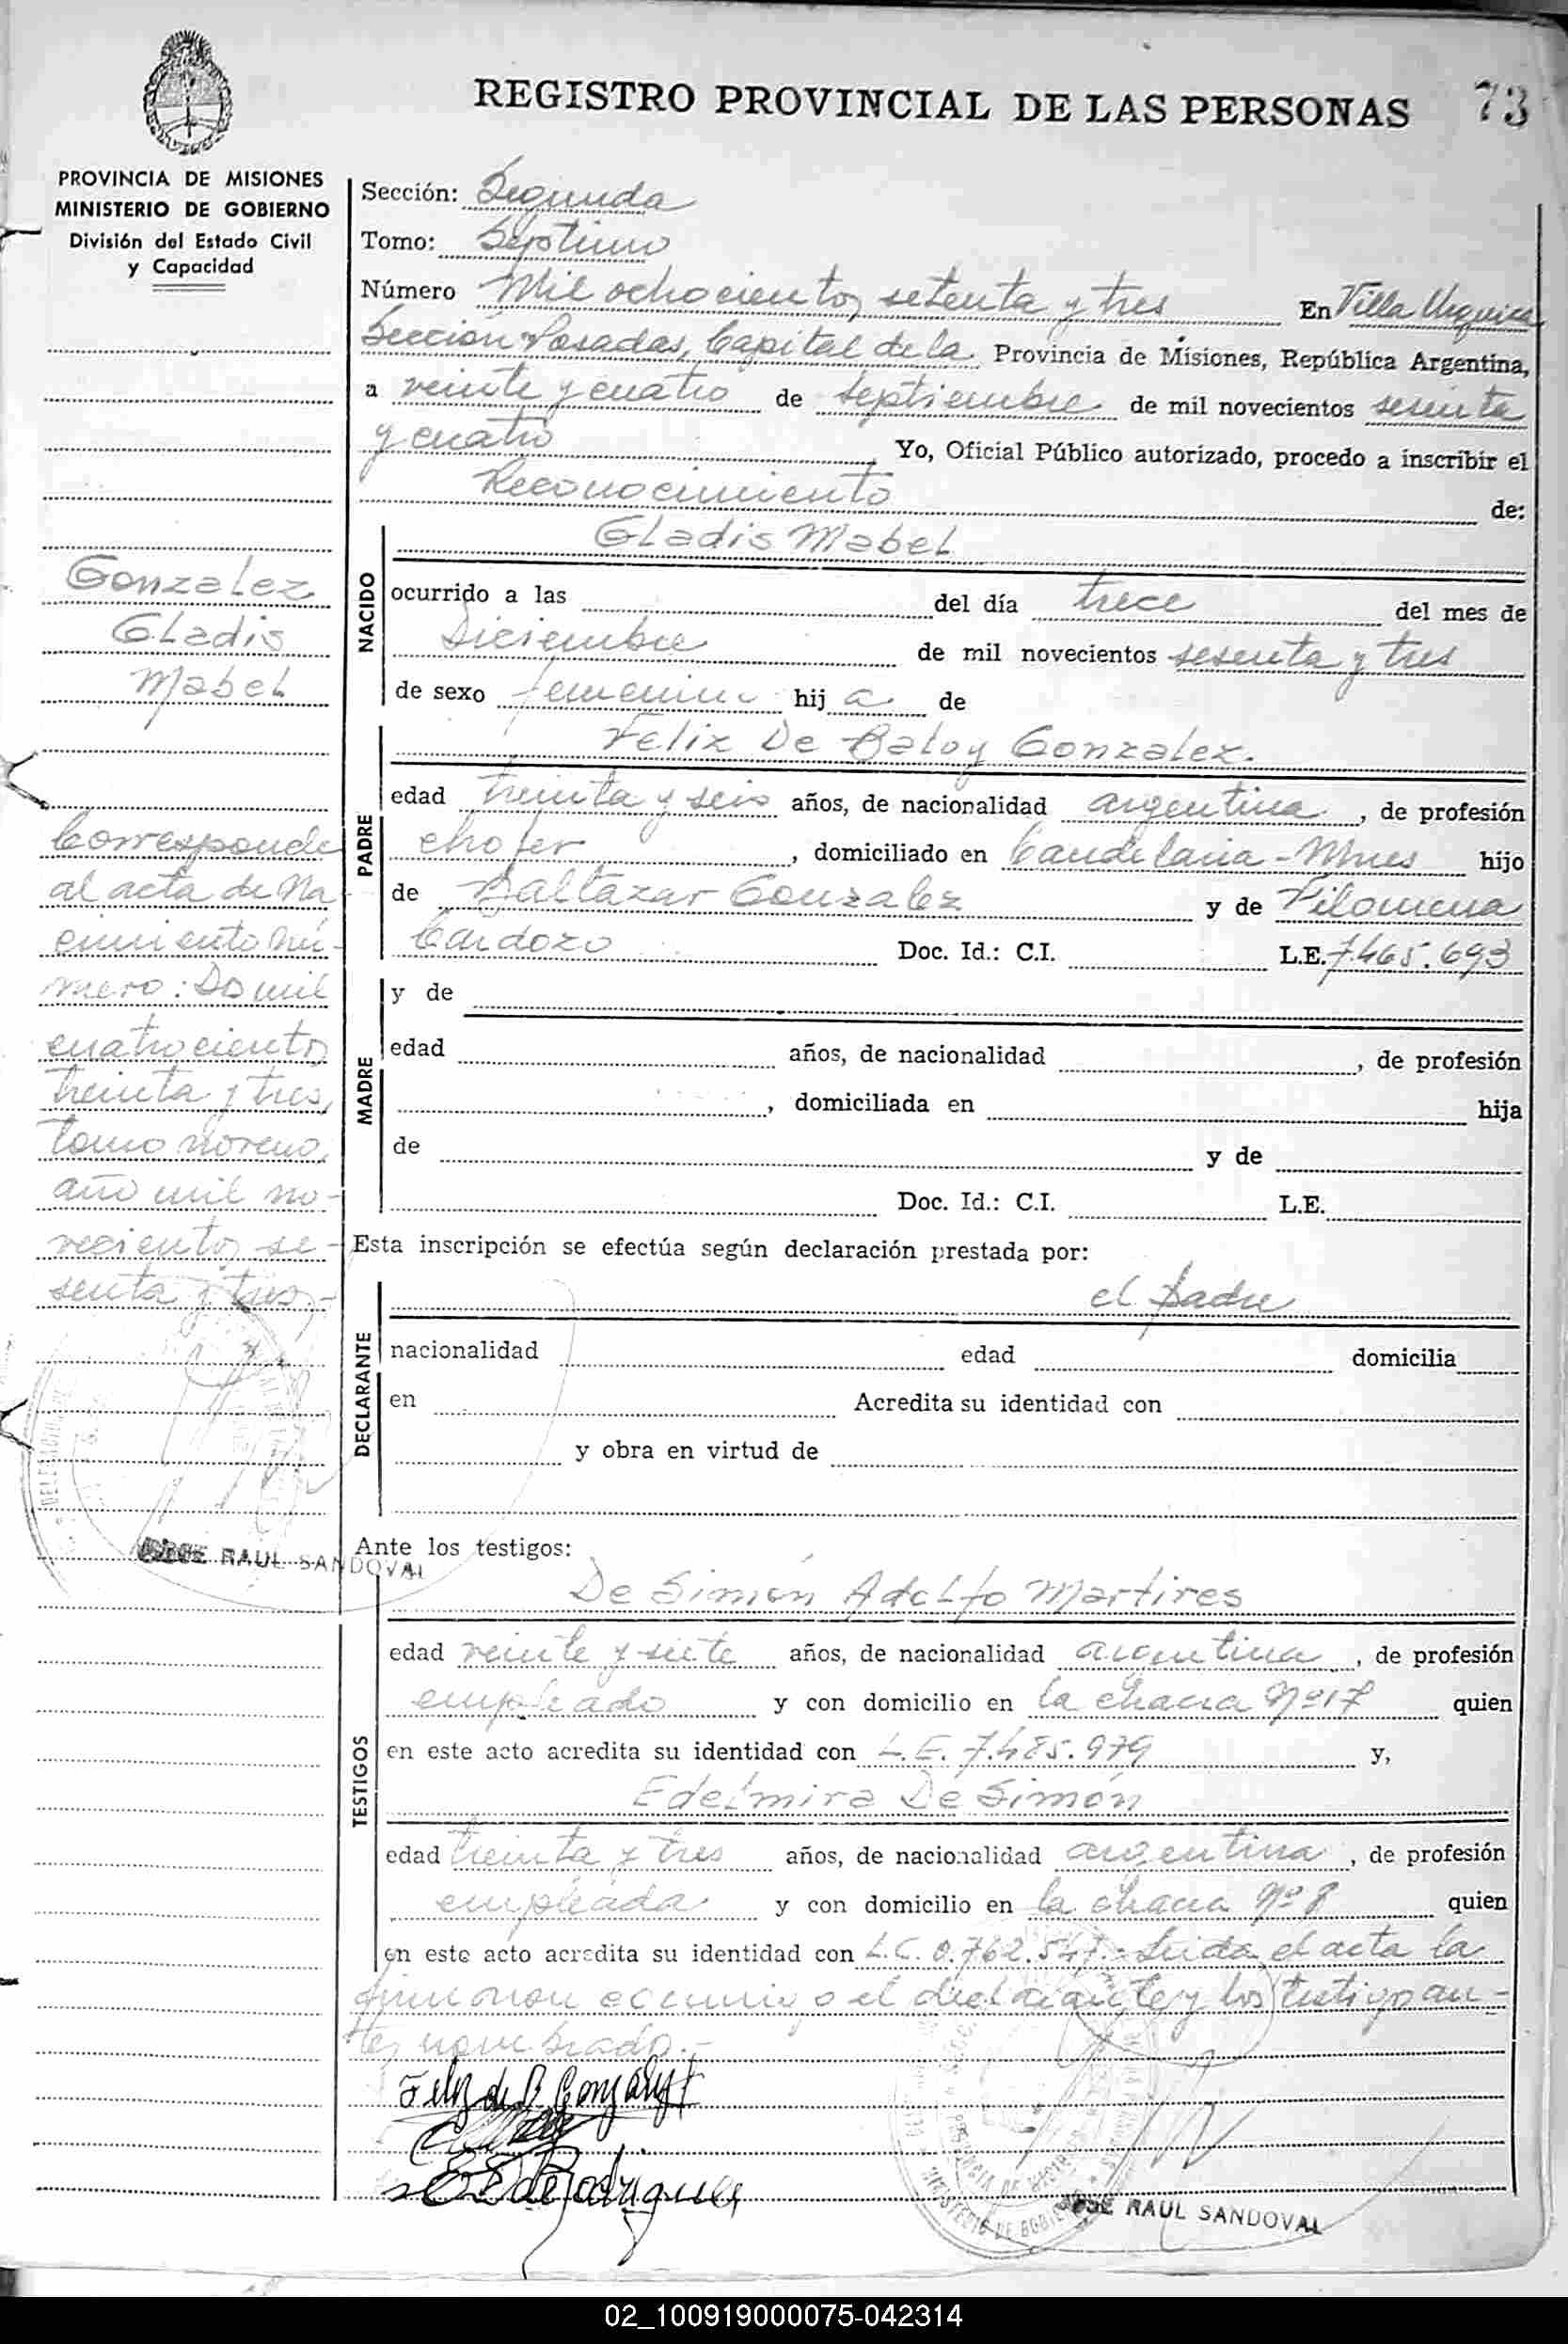 REGISTRO PROVINCIAL DE LAS PERSONAS 73
PROVINCIA DE MISIONES
MINISTERIO DE GOBIERNO
División del Estado Civil
y Capacidad
Gonzalez
Gladis
Mabel
Corresponde
al acta de Na
cimiento nú-
mero: Dos mil
cuatrocientos
treinta y tres,
tomo noveno,
año mil no-
vecientos se-
senta y tres.-
JOSE RAUL SANDOVAL
Sección: Segunda
Tomo: Séptimo
Número Mil ochocientos setenta y tres En Villa Urquiza
Sección Posadas, Capital de la Provincia de Misiones, República Argentina,
a veinte y cuatro de septiembre de mil novecientos sesenta
y cuatro Yo, Oficial Público autorizado, procedo a inscribir el
Reconocimiento de:
NACIDO
Gladis Mabel
ocurrido a las del día trece del mes de
Diciembre de mil novecientos sesenta y tres
de sexo femenino hij a de
PADRE
Felix De Baloy Gonzalez.
edad treinta y seis años, de nacionalidad argentina, de profesión
chofer, domiciliado en Candelaria - Mnes hijo
de Baltazar Gonzalez y de Filomena
Cardozo Doc. Id.: C.I. L.E. 7.465.693
MADRE
y de
edad años, de nacionalidad , de profesión
, domiciliada en hija
de y de
Doc. Id.: C.I. L.E.
Esta inscripción se efectúa según declaración prestada por:
DECLARANTE
el padre
nacionalidad edad domicilia
en Acredita su identidad con
y obra en virtud de
Ante los testigos:
TESTIGOS
De Simón Adolfo Martires
edad veinte y siete años, de nacionalidad argentina, de profesión
empleado y con domicilio en la chacra Nº 17 quien
en este acto acredita su identidad con L.E. 7.485.979 y,
Edelmira De Simón
edad treinta y tres años, de nacionalidad argentina, de profesión
empleada y con domicilio en la chacra Nº 8 quien
en este acto acredita su identidad con L.C. 0.762.547.- Leída el acta la
firmaron conmigo el declarante y los testigos an-
tes nombrado.-
Felix de B Gonzalez
E D de Rodriguez
JOSE RAUL SANDOVAL
02_100919000075-042314